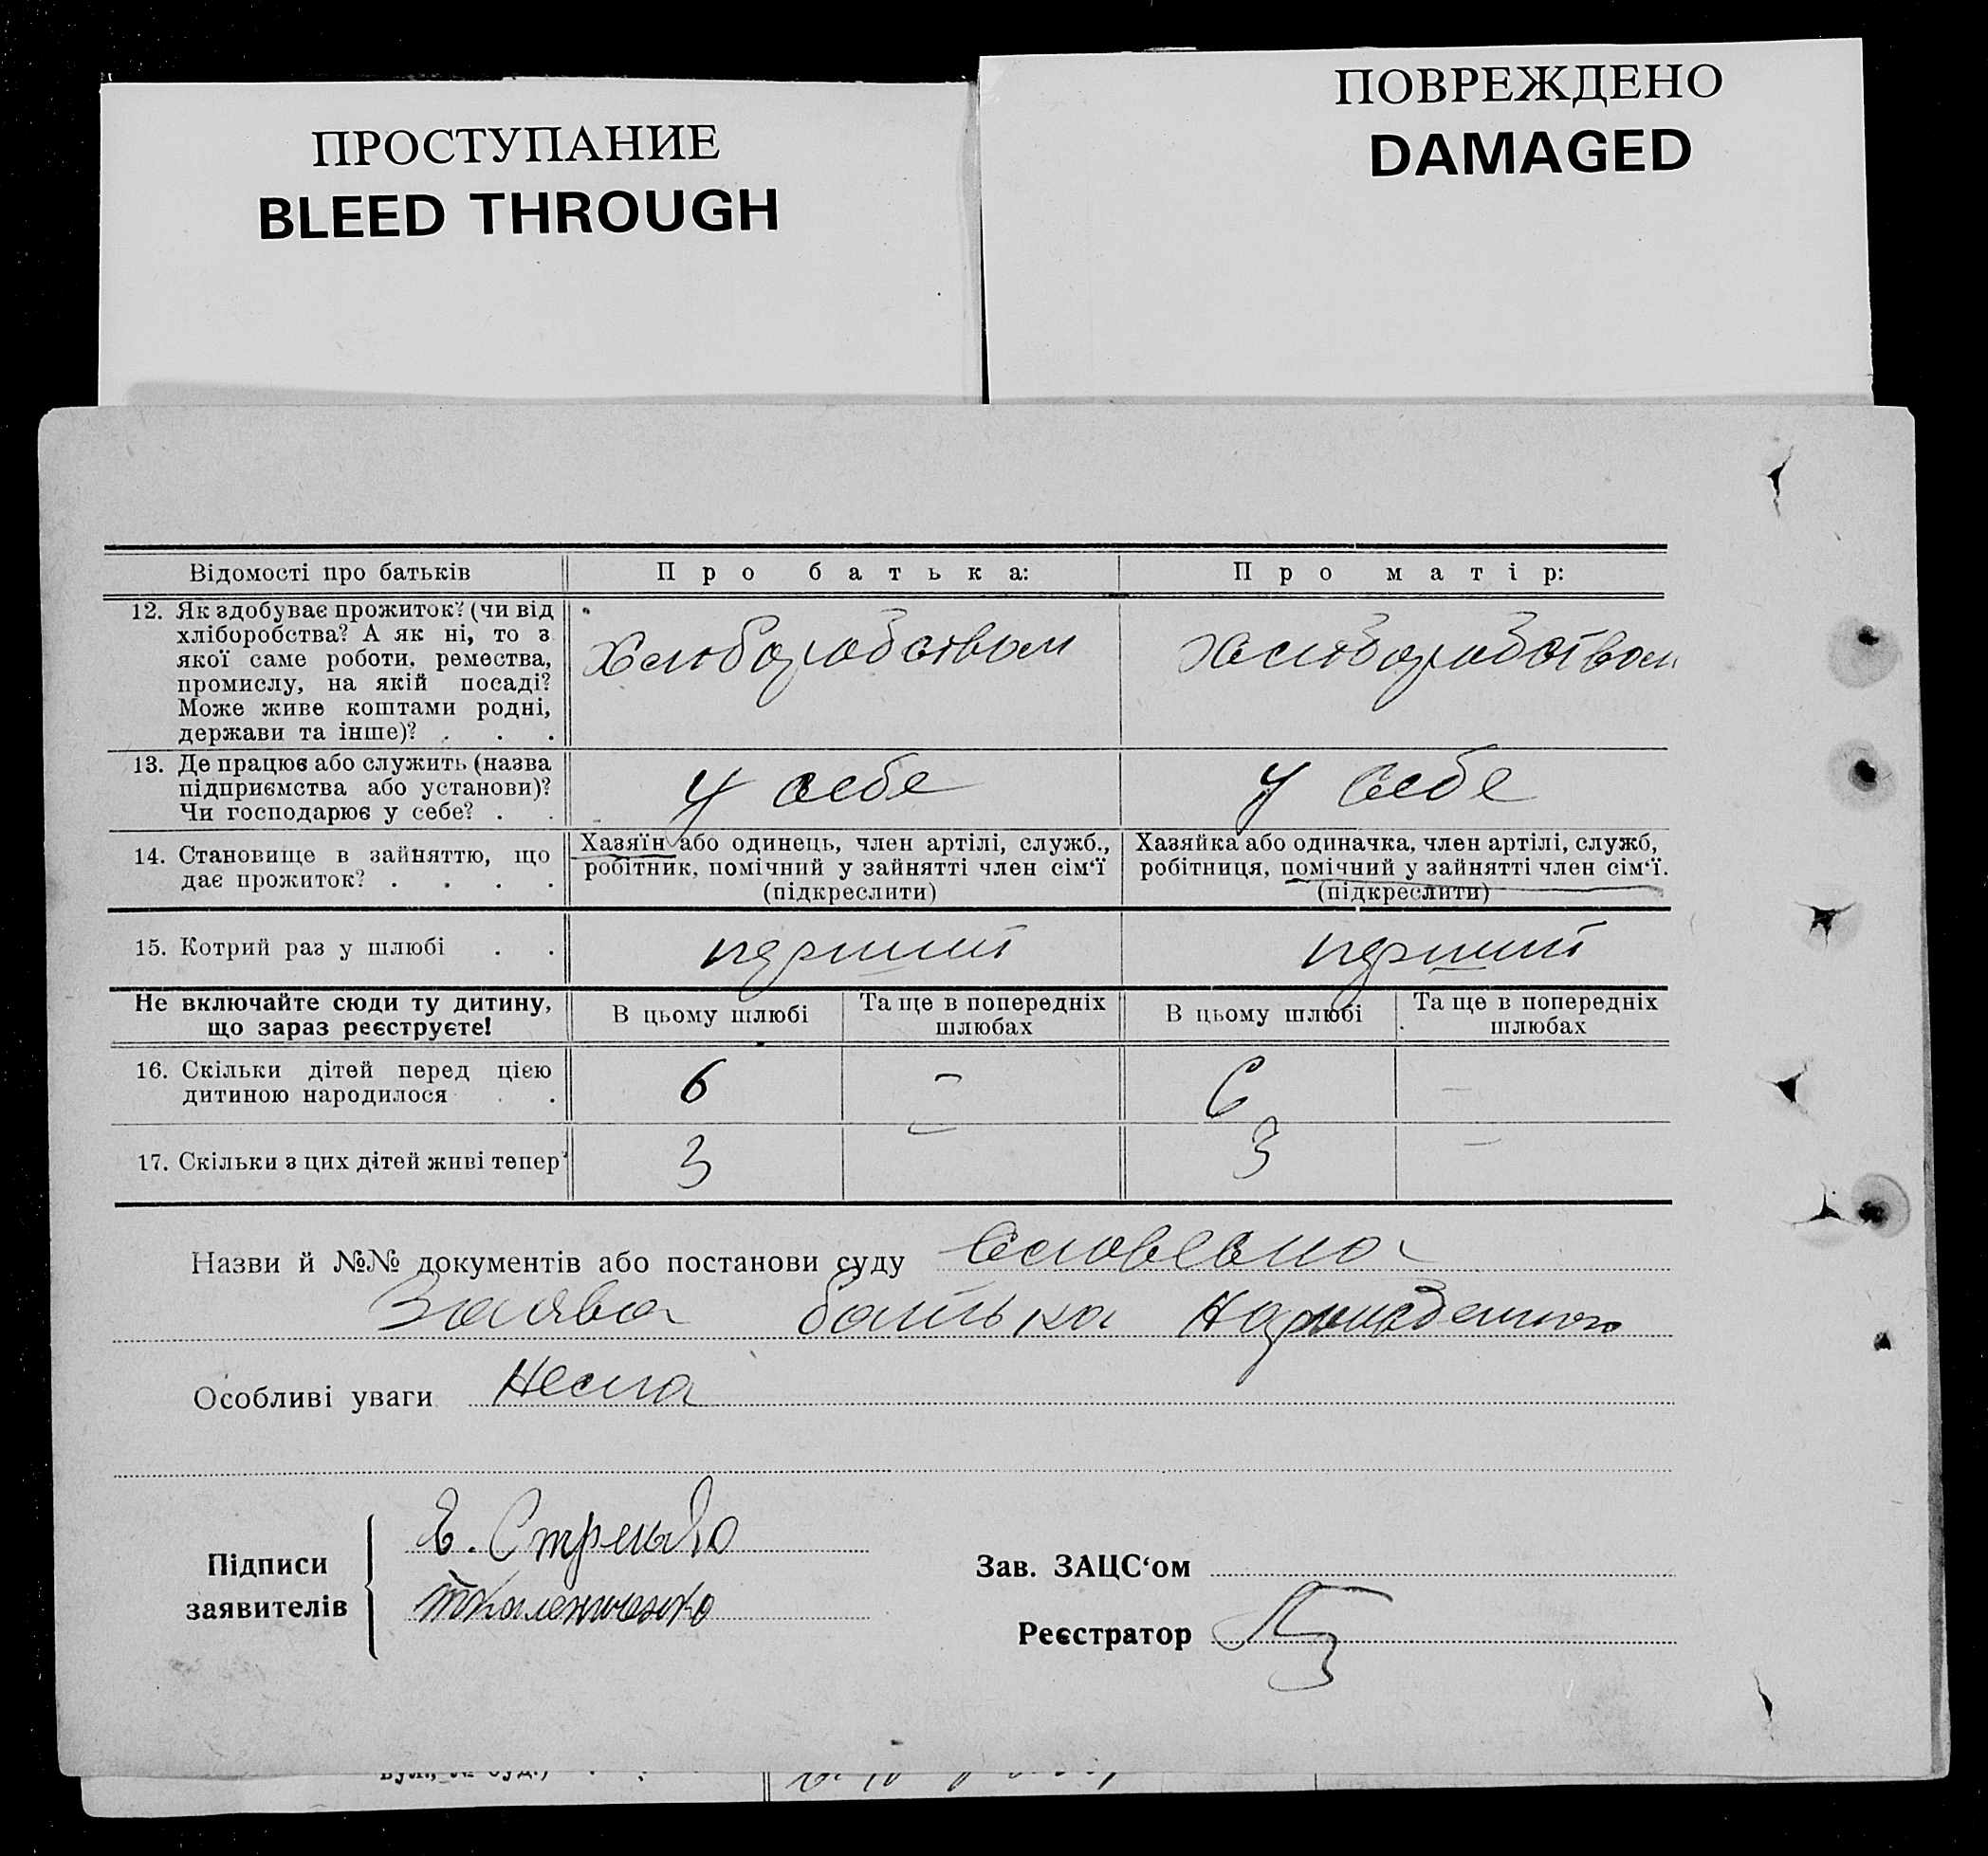 ПРОСТУПАНИЕ
BLEED THROUGH
ПОВРЕЖДЕНО
DAMAGED
Відомості про батьків
Про батька:
Про матір:
12. Як здобуває прожиток? (чи від
хліборобства? А як ні, то з
якої саме роботи, ремества,
промислу, на якій посаді?
Може живе коштами родні,
держави та інше)? . . .
Хлюборобством
Хлюборобством
13. Де працює або служить (назва
підприємства або установи)?
Чи господарює у себе? . .
у себе
у себе
14. Становище в зайняттю, що
дає прожиток? . . . .
Хазяїн або одинець, член артілі, служб.,
робітник, помічний у зайнятті член сім‘ї
(підкреслити)
Хазяйка або одиначка, член артілі, служб,
робітниця, помічний у зайнятті член сім‘ї.
(підкреслити)
15. Котрий раз у шлюбі . .
перший
перший
Не включайте сюди ту дитину,
що зараз реєструєте!
В цьому шлюбі
Та ще в попередніх
шлюбах
В цьому шлюбі
Та ще в попередніх
шлюбах
16. Скільки дітей перед цією
дитиною народилося . .
6
–
6
–
17. Скільки з цих дітей живі тепер
3
–
3
–
Назви й №№ документів або постанови суду словесна
Заява батька
Особливі уваги Нема
Підписи
заявителів
Зав. ЗАЦС‘ом
Реєстратор